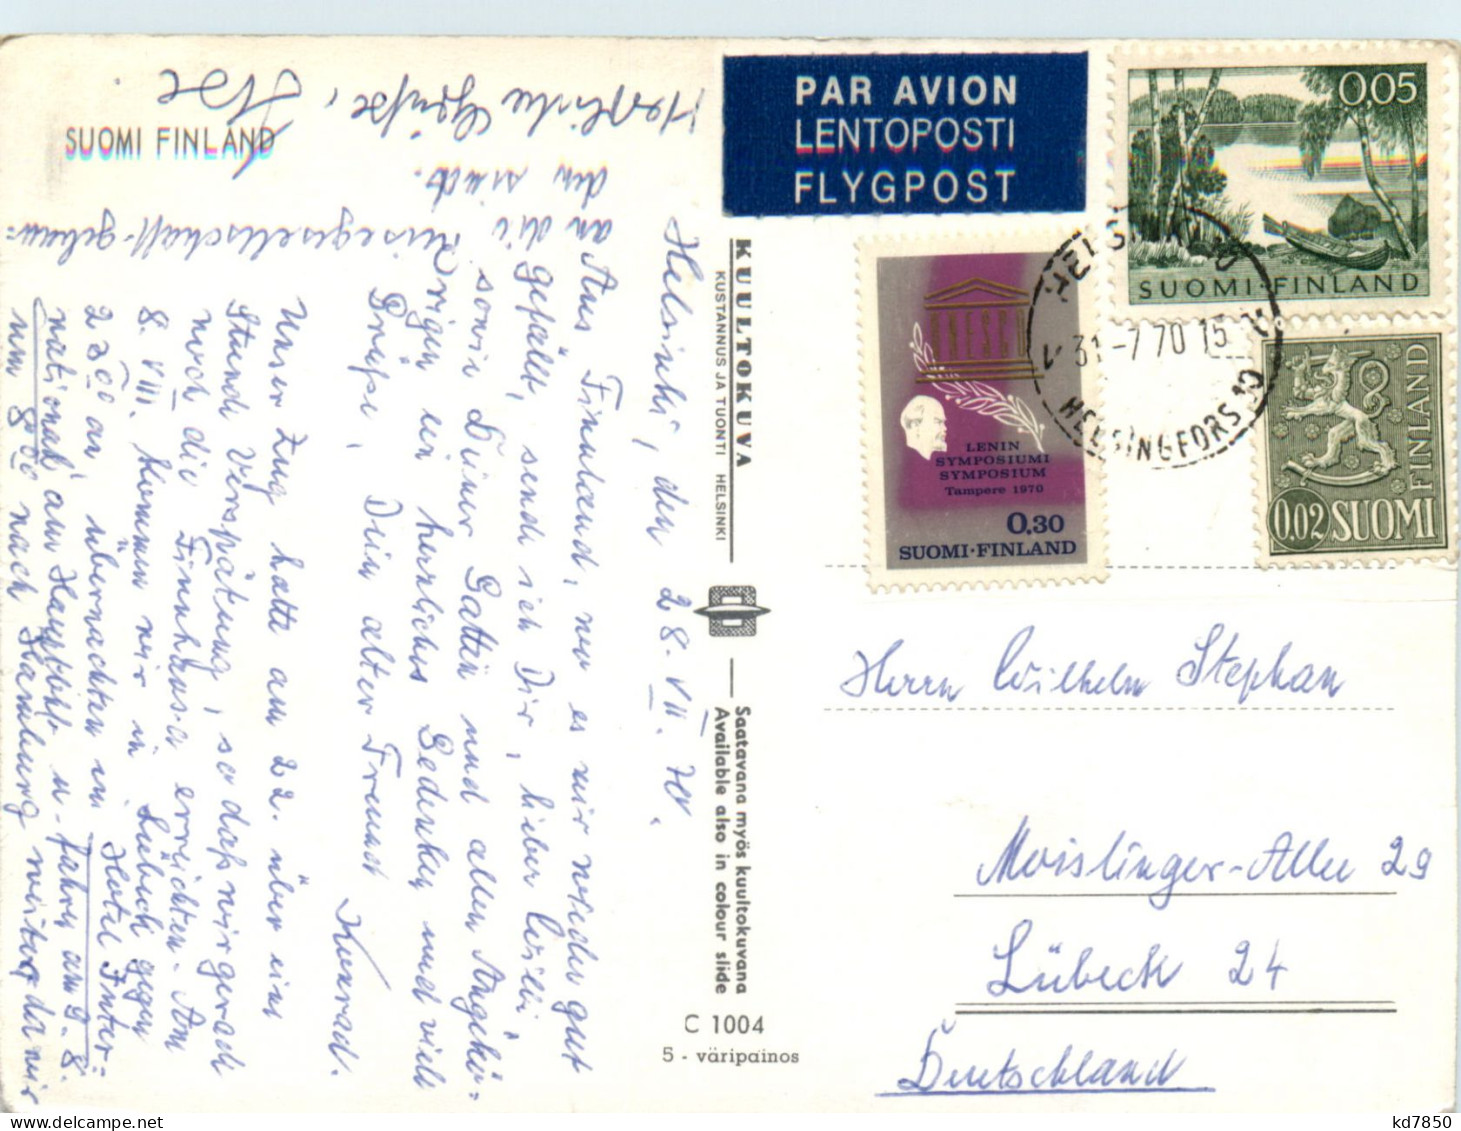 SUOMI FINLAND
Herzliche Grüße,
PAR AVION
LENTOPOSTI
FLYGPOST
0,05
SUOMI·FINLAND
UNESCO
LENIN
SYMPOSIUMI
SYMPOSIUM
Tampere 1970
0,30
SUOMI·FINLAND
31-7 70 15
HELSINGFORS
FINLAND
0,02 SUOMI
KUULTOKUVA
KUSTANNUS JA TUONTI HELSINKI
Saatavana myös kuultokuvana
Available also in colour slide
C 1004
5 - väripainos
Helsinki, den 28. VII. 70.
Aus Finnland, wo es mir wieder gut
gefällt, sende ich Dir, lieber Willi,
sowie Deiner Gattin und allen Angehö-
rigen ein herrliches Gedenken und viele
Grüße, Dein alter Freund
Konrad.
Unser Zug hatte am 22. über eine
Stunde Verspätung, so daß wir gerade
noch die Finnhansa erreichten. Am
8. VIII. kommen wir in Lübeck gegen
an, übernachten im Hotel Inter-
national am Hauptbhf u. fahren am 9. 8.
um 8 00 nach Hamburg weiter, da wir
an die Reisegesellschaft gebun-
den sind.
Herrn Wilhelm Stephan
Moislinger-Allee 29
Lübeck 24
Deutschland
kd7850